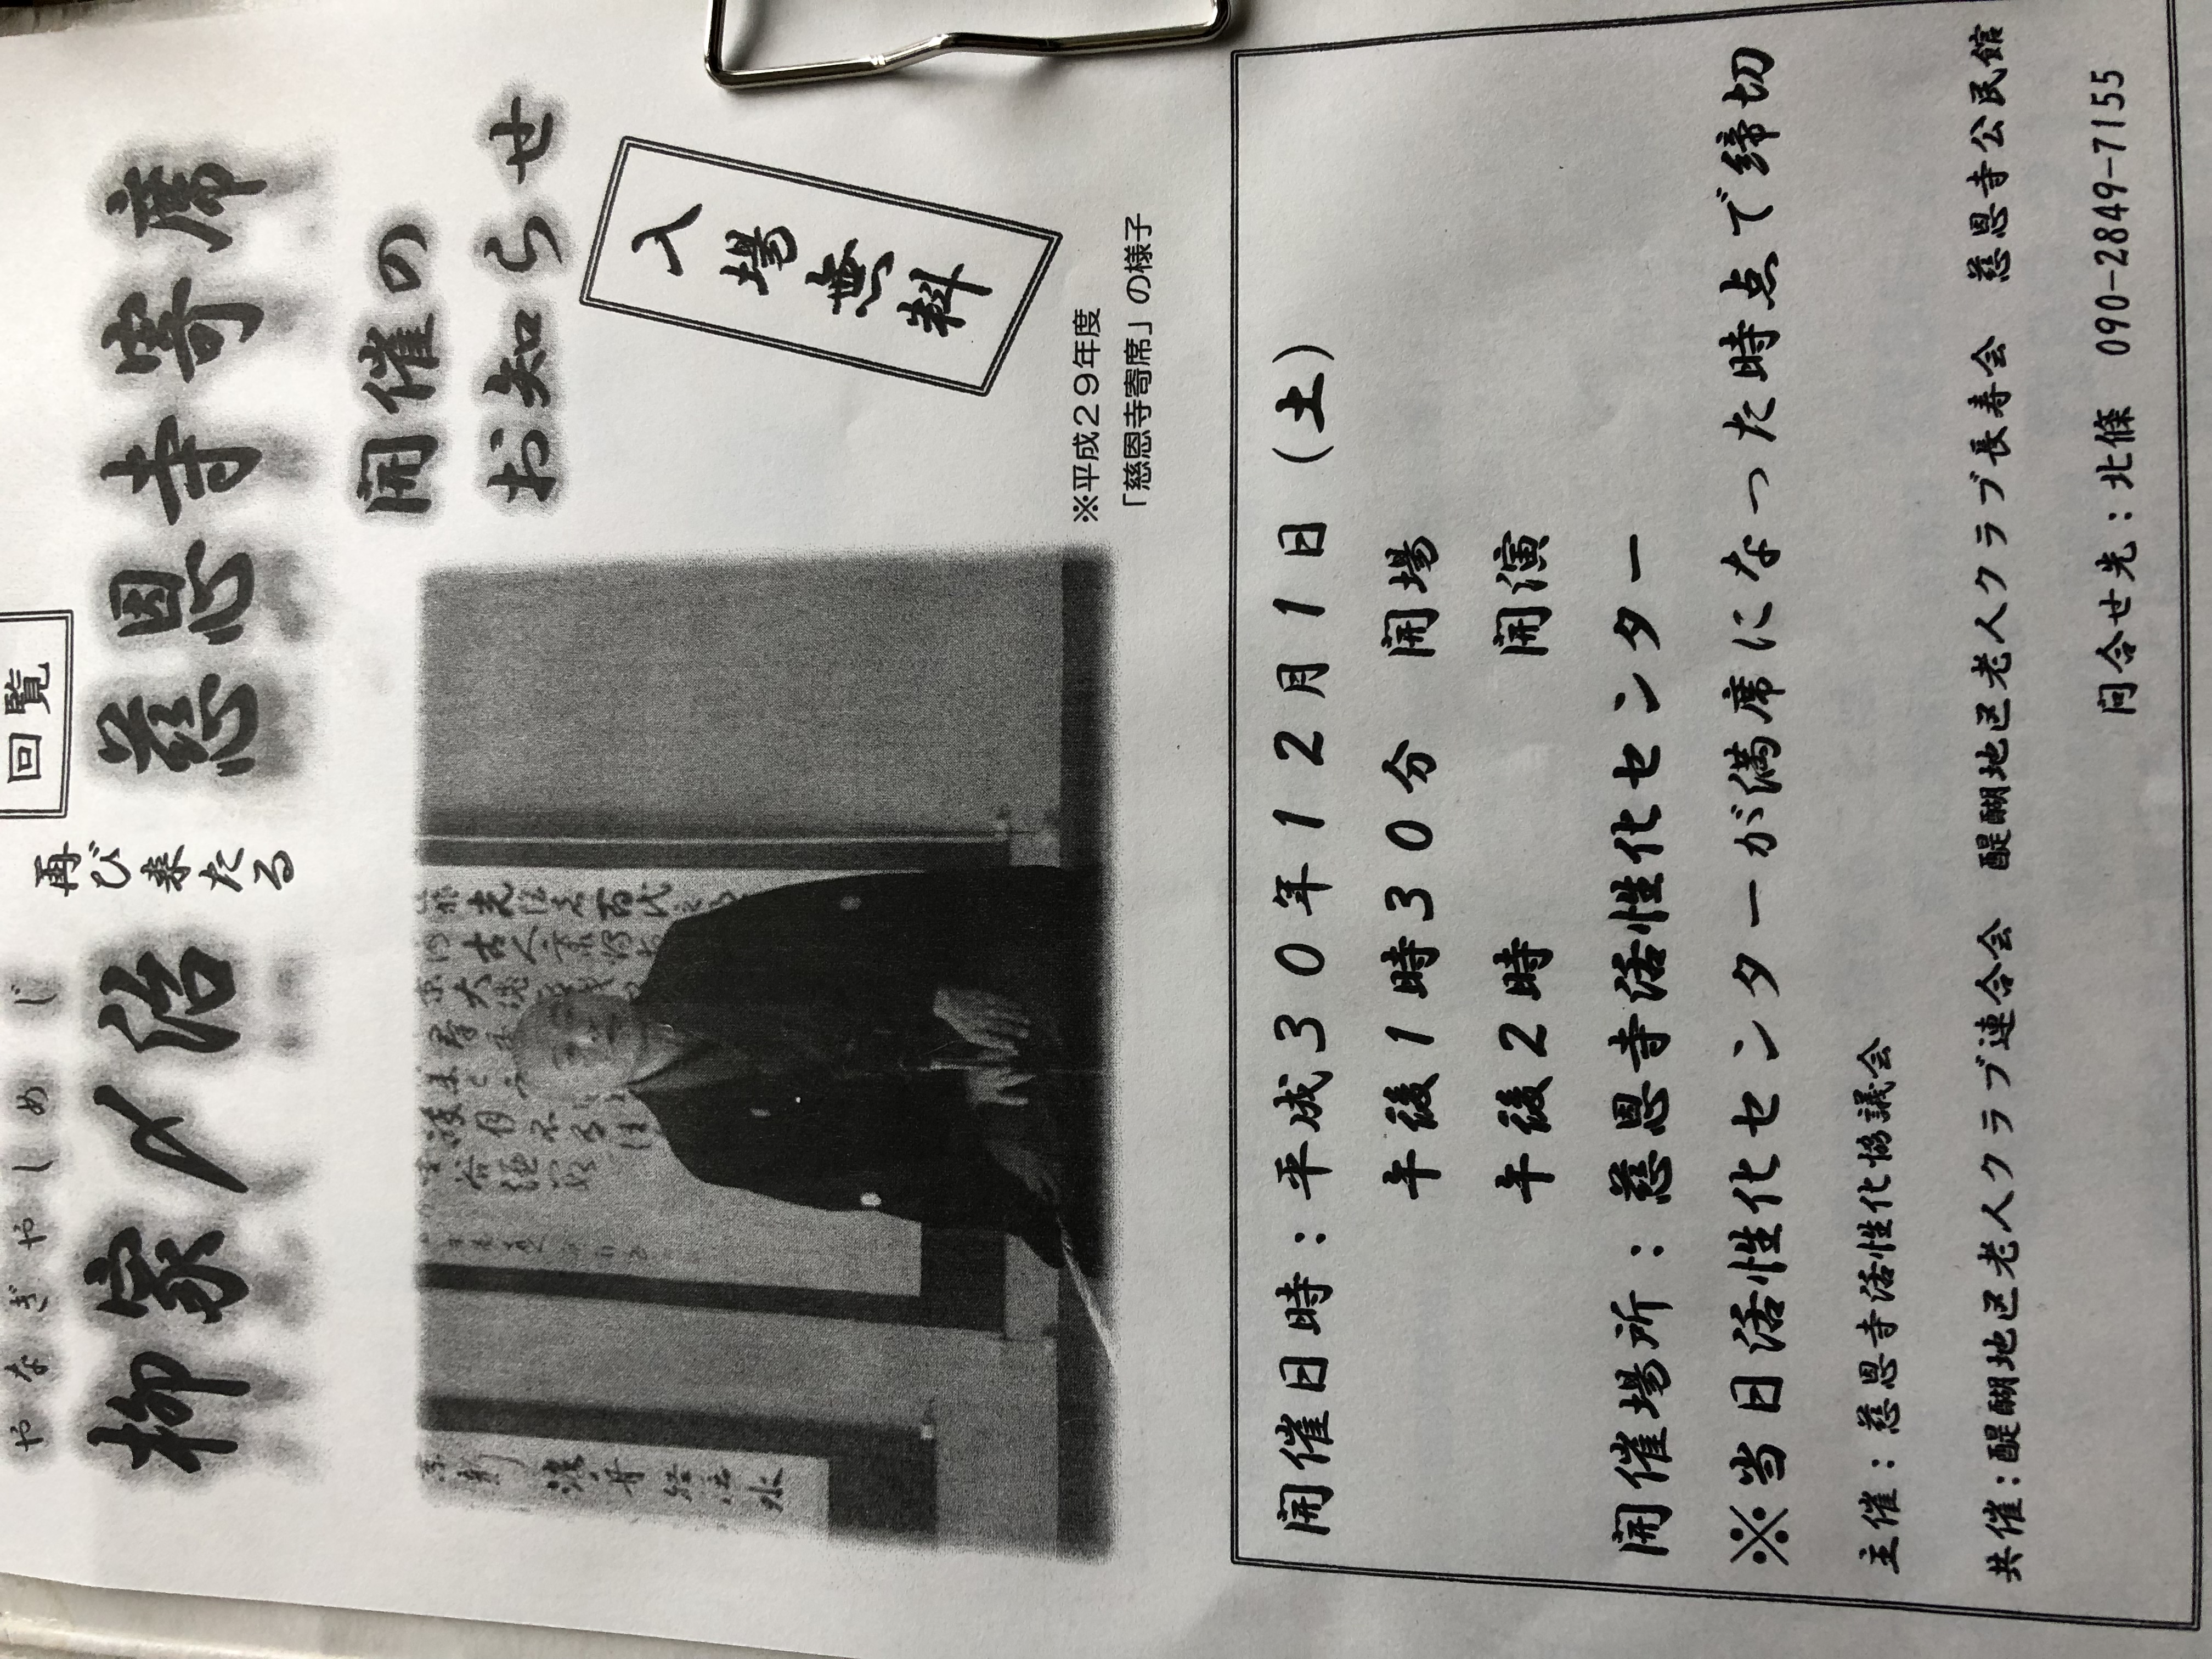 回覧
やなぎやしめじ
柳家〆治
再び来たる
慈恩寺寄席
開催の
お知らせ
入場無料
※平成29年度
「慈恩寺寄席」の様子
開催日時：平成30年12月1日（土）
午後1時30分　開場
午後2時　開演
開催場所：慈恩寺活性化センター
※当日活性化センターが満席になった時点で締切
主催：慈恩寺活性化協議会
共催：醍醐地区老人クラブ連合会　醍醐地区老人クラブ長寿会　慈恩寺公民館
問合せ先：北條　090-2849-7155